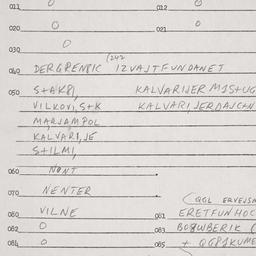 011 0 012 0
020 0 021 0
030 0
040 DERGRENPIC IZVAJTFUNDANET
050 S+AKPI, KALVARIJER MIS+UG
VILKOVI, S+K KALVARIJERDAJCAN
MARJAMPOL
KALVARI, JE
S+ILMI,
060 NONT
070 NENTER
QGL ERVEJSN
080 VILNE 081 ERETFUNHOC
082 0 083 BOBUWBERIK
084 0 085 + QGPIKUME